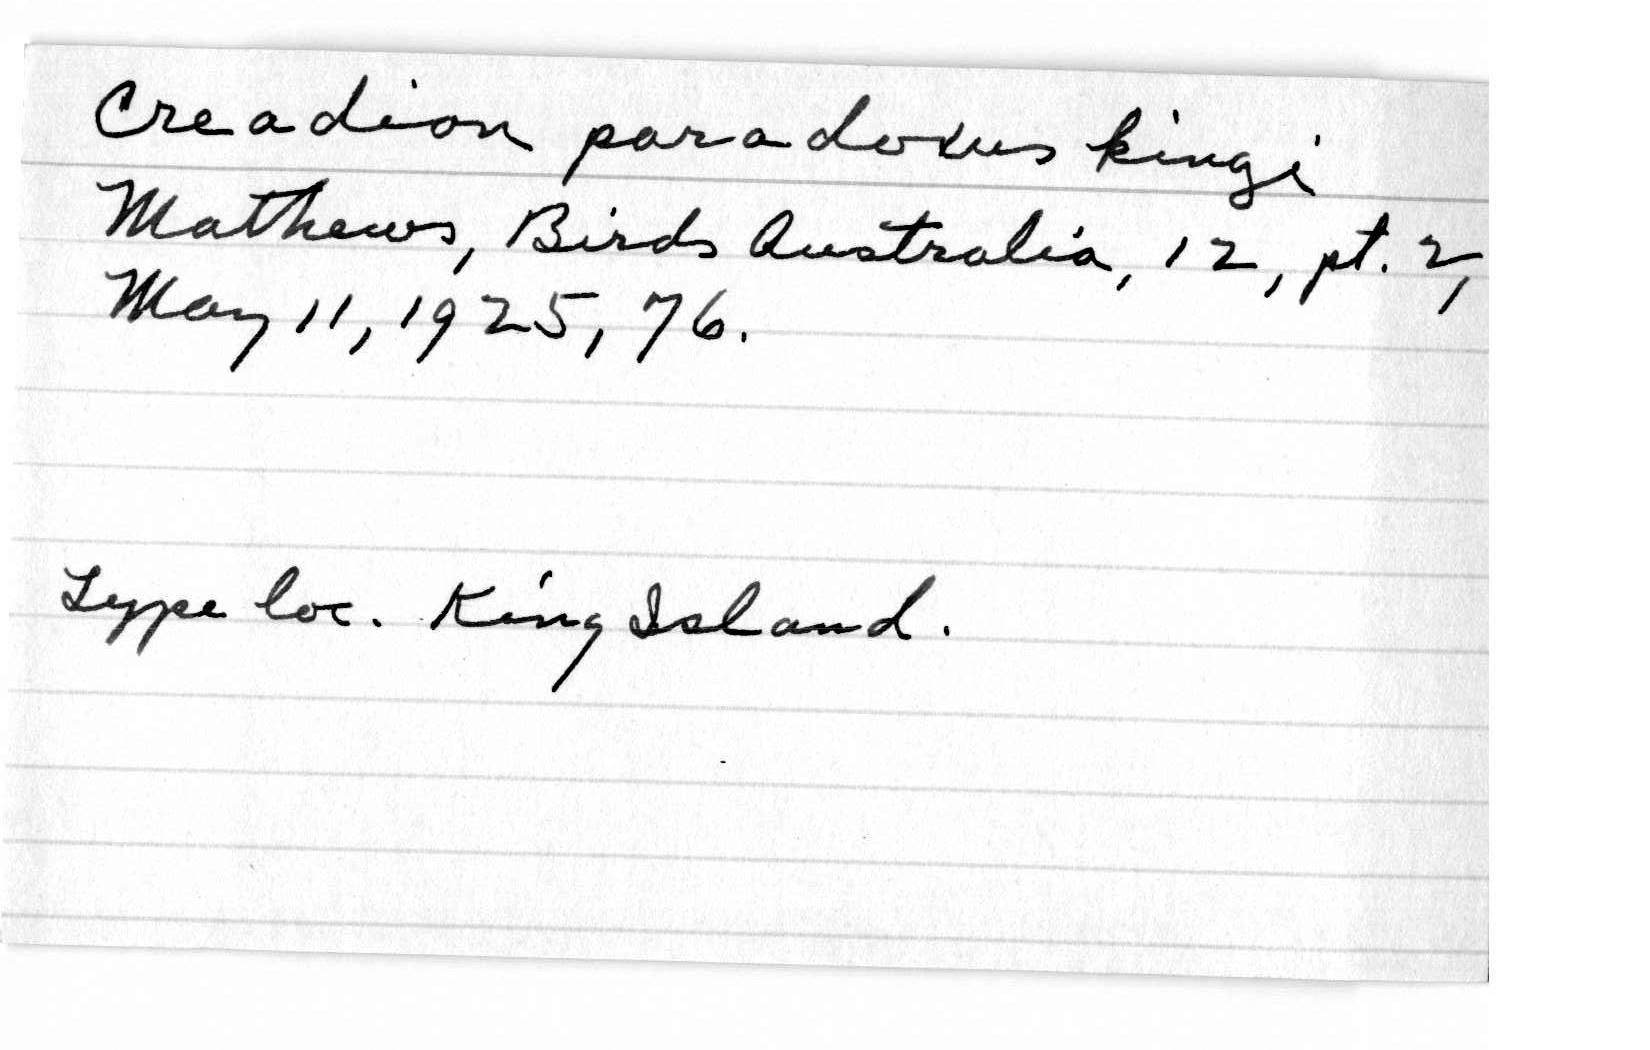 Creadion paradoxus kingi
Mathews, Birds Australia, 12, pt. 2,
May 11, 1925, 76.
Type loc. King Island.